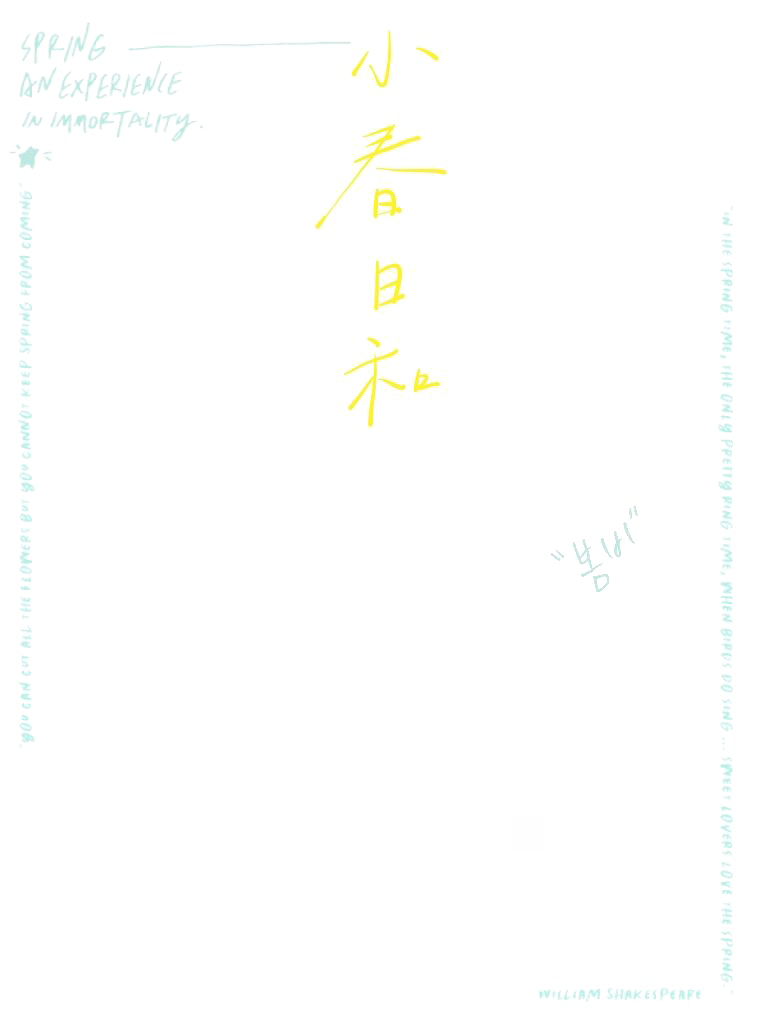 SPRING
AN EXPERIENCE
IN IMMORTALITY.
小春日和
"YOU CAN CUT ALL THE FLOWERS BUT YOU CANNOT KEEP SPRING FROM COMING"
"봄비"
"IN THE SPRING TIME, THE ONLY PRETTY RING TIME, WHEN BIRDS DO SING... SWEET LOVERS LOVE THE SPRING."
WILLIAM SHAKESPEARE